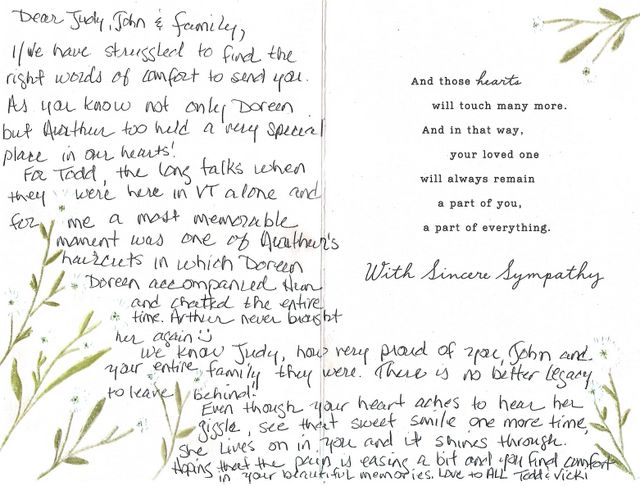 Dear Judy, John & family,
I/We have struggled to find the
right words of comfort to send you.
As you know not only Doreen
but Aurthur too held a very special
place in our hearts!
For Todd, the long talks when
they were here in VT alone and
for me a most memorable
moment was one of Aurthur's
haircuts in which Doreen
Doreen accompanied Him
and chatted the entire
time. Arthur never brought
her again
We know Judy, how very proud of you, John and
your entire family they were. There is no better legacy
to leave behind!
Even though your heart aches to hear her
giggle, see that sweet smile one more time,
She lives on in you and it shines through.
Hoping that the pain is easing a bit and you find comfort
in your beautiful memories. Love to ALL Todd & Vicki
And those hearts
will touch many more.
And in that way,
your loved one
will always remain
a part of you,
a part of everything.
With Sincere Sympathy